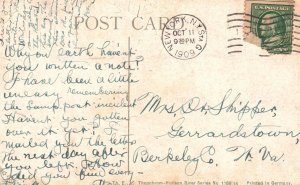 POST CARD
NEW YORK, N.Y. STA G
OCT 11
9 PM
1909
U.S. POSTAGE
Why on earth haven't
you written a note!
I have been a little
uneasy remembering
the lamp post incident
Haven't you gotten
over it yet? I
mailed you the letter
the next day after
you left. How
did you find every
Mrs. Dr. Shipper,
Gerrardstown,
Berkeley Co. W. Va.
Hudson River Series No.
Printed in Germany